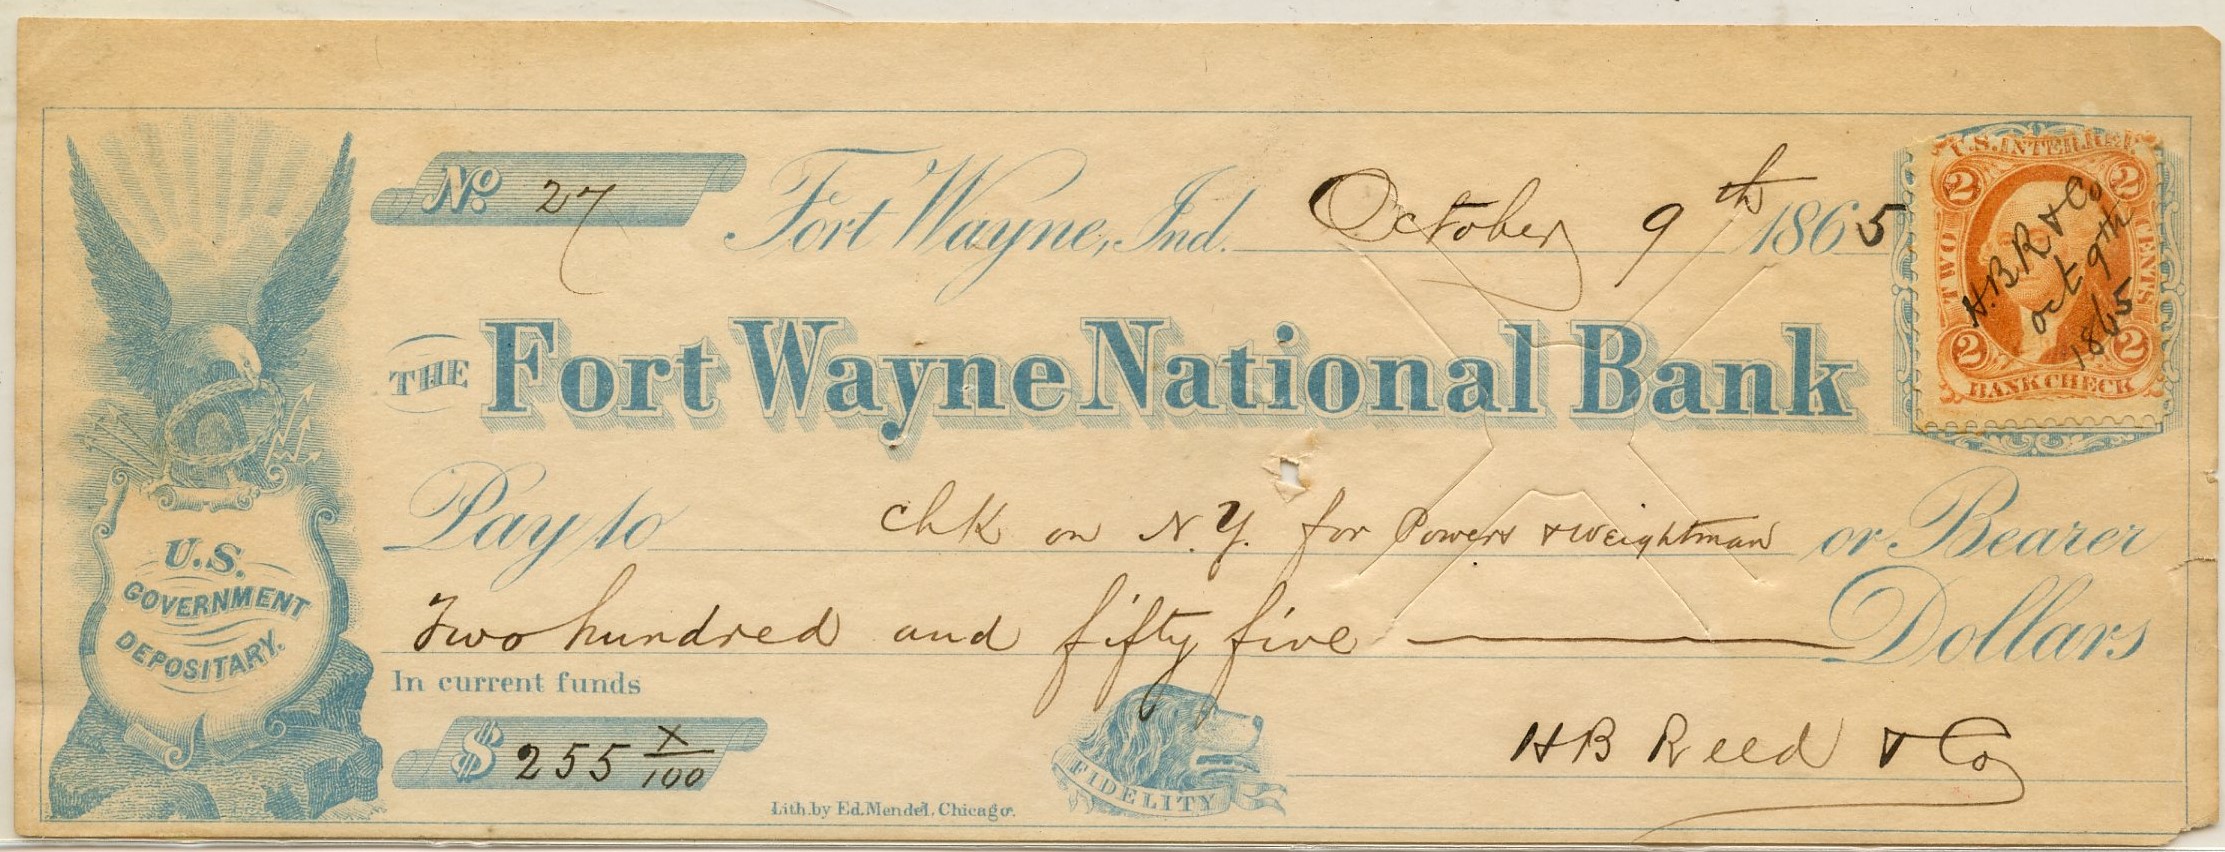 No. 27 Fort Wayne, Ind. October 9th 1865
THE Fort Wayne National Bank
Pay to chk on N.Y. for Powers & Weightman or Bearer
Two hundred and fifty five Dollars
In current funds
$ 255 X/100
H B Reed & Co
FIDELITY
Lith. by Ed. Mendel, Chicago.
U.S.
GOVERNMENT
DEPOSITARY.
U.S. INTER. REV.
2 2
TWO CENTS
H.B.R & Co
Oct 9th
1865
2 2
BANK CHECK